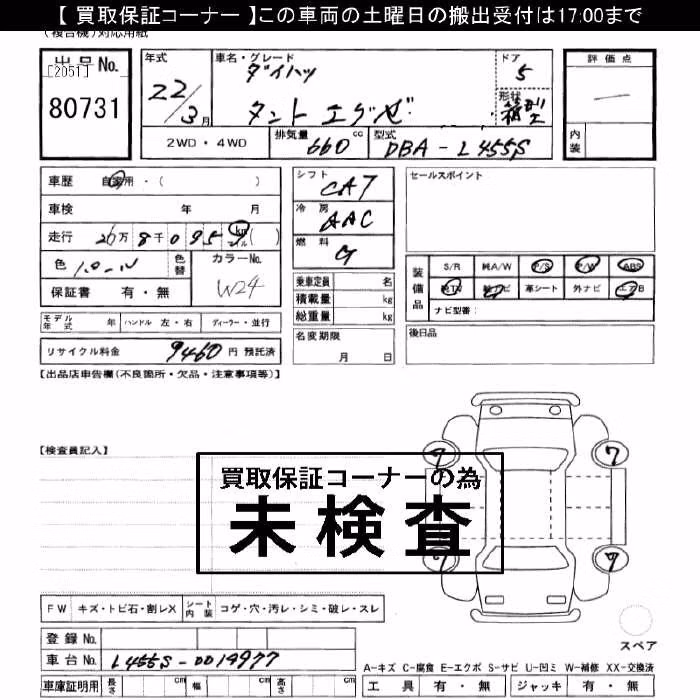 【 買取保証コーナー 】この車両の土曜日の搬出受付は17:00まで
(複合機)対応用紙
出品No.
[2051]
80731
年式
22/3月
車名・グレード
ダイハツ
タント エグゼ
ドア
5
形状
箱型
評価点
—
内装
2WD・4WD
排気量 660 cc
型式 DBA-L455S
車歴 自家用・( )
車検 年 月
走行 26万8千095 km マイル( )
色 パール
色替
カラーNo.
W24
保証書 有・無
シフト
CAT
冷房
AAC
燃料
G
乗車定員 名
積載量 kg
総重量 kg
セールスポイント
装備品
S/R 純A/W P/S P/W ABS
純TV 純ナビ 革シート 外ナビ エアB
ナビ型番:
モデル年式 年 ハンドル 左・右 ディーラー・並行
名変期限
月 日
後日品
リサイクル料金 9460 円 預託済
【出品店車告欄(不良箇所・欠品・注意事項等)】
【検査員記入】
買取保証コーナーの為
未検査
7 7
7 7
FW キズ・トビ石・割レX シート内装 コゲ・穴・汚レ・シミ・破レ・スレ
登録No.
車台No. L455S-0019977
スペア
A-キズ C-腐食 E-エクボ S-サビ U-凹ミ W-補修 XX-交換済
車庫証明用 長さ cm 幅 cm 高さ cm
工具 有・無 ジャッキ 有・無